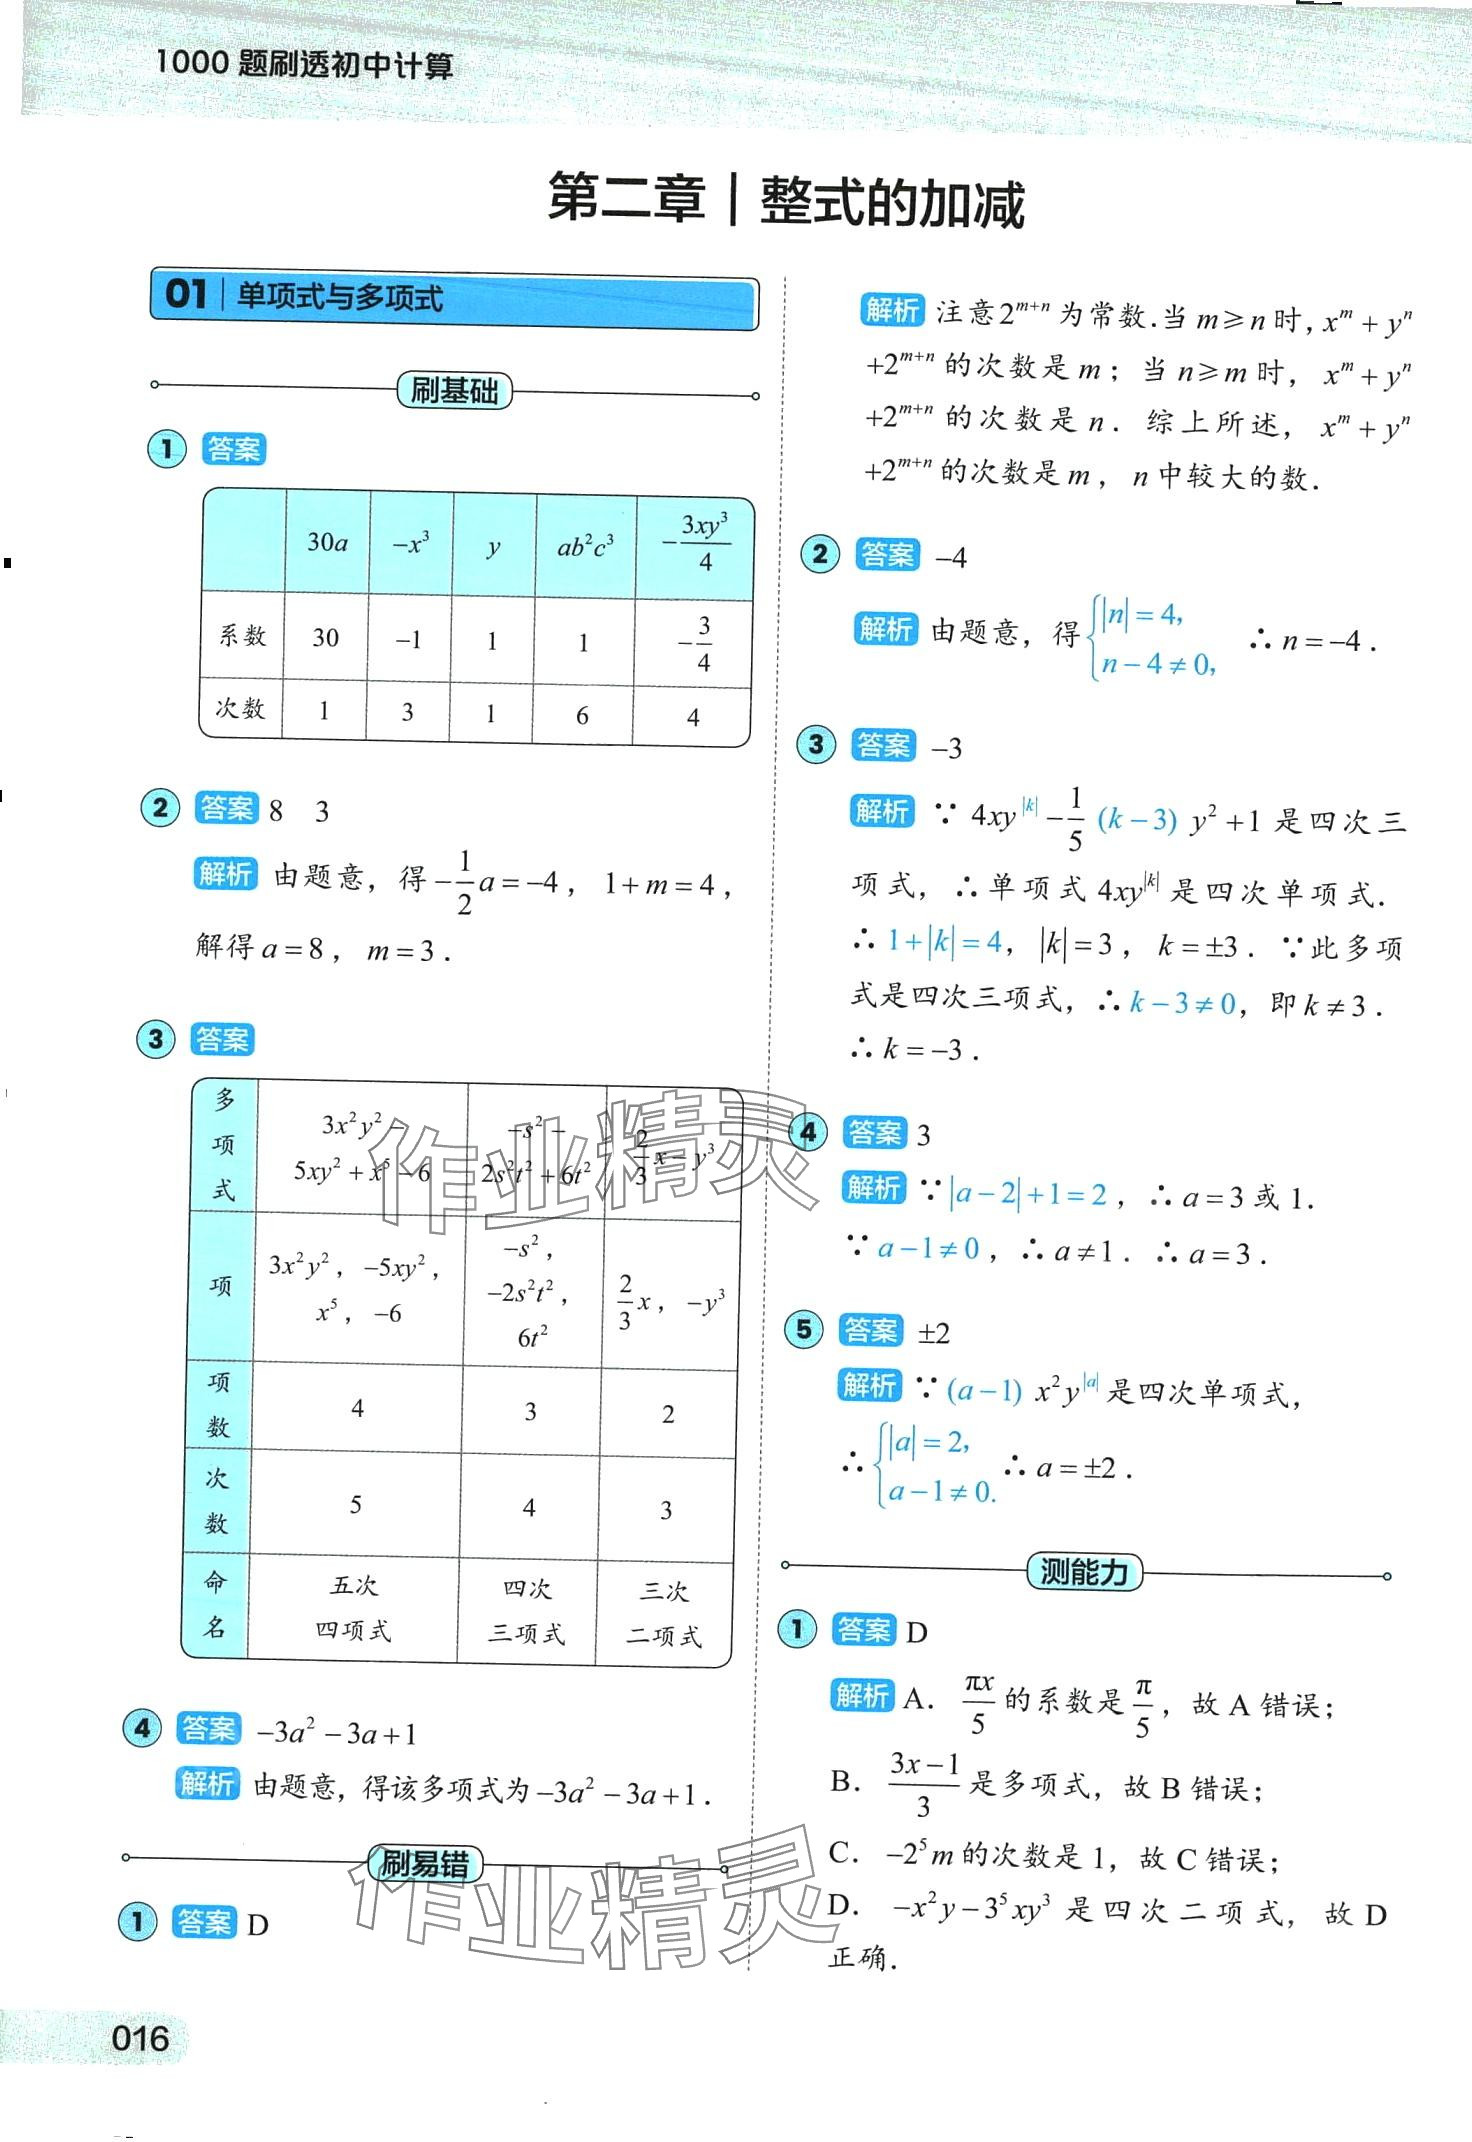 1000 题刷透初中计算
第二章｜整式的加减
01｜单项式与多项式
刷基础
① 答案
30a −x³ y ab²c³ −3xy³/4
系数 30 −1 1 1 −3/4
次数 1 3 1 6 4
② 答案 8 3
解析 由题意，得−1/2a=−4，1+m=4，
解得 a=8，m=3．
③ 答案
多项式 3x²y²−5xy²+x⁵−6 −s²−2s²t²+6t² 2/3x−y³
项 3x²y²，−5xy²，x⁵，−6 −s²，−2s²t²，6t² 2/3x，−y³
项数 4 3 2
次数 5 4 3
命名 五次四项式 四次三项式 三次二项式
④ 答案 −3a²−3a+1
解析 由题意，得该多项式为−3a²−3a+1．
刷易错
① 答案 D
解析 注意2^{m+n}为常数．当 m≥n 时，x^m+y^n
+2^{m+n}的次数是 m；当 n≥m 时，x^m+y^n
+2^{m+n}的次数是 n．综上所述，x^m+y^n
+2^{m+n}的次数是 m，n 中较大的数．
② 答案 −4
解析 由题意，得{|n|=4，n−4≠0，∴n=−4．
③ 答案 −3
解析 ∵4xy^{|k|}−1/5(k−3)y²+1 是四次三
项式，∴单项式 4xy^{|k|}是四次单项式．
∴1+|k|=4，|k|=3，k=±3．∵此多项
式是四次三项式，∴k−3≠0，即 k≠3．
∴k=−3．
④ 答案 3
解析 ∵|a−2|+1=2，∴a=3 或 1．
∵a−1≠0，∴a≠1．∴a=3．
⑤ 答案 ±2
解析 ∵(a−1)x²y^{|a|}是四次单项式，
∴{|a|=2，a−1≠0．∴a=±2．
测能力
① 答案 D
解析 A．πx/5的系数是π/5，故 A 错误；
B．(3x−1)/3是多项式，故 B 错误；
C．−2⁵m的次数是 1，故 C 错误；
D．−x²y−3⁵xy³ 是四次二项式，故 D
正确．
作业精灵
作业精灵
016